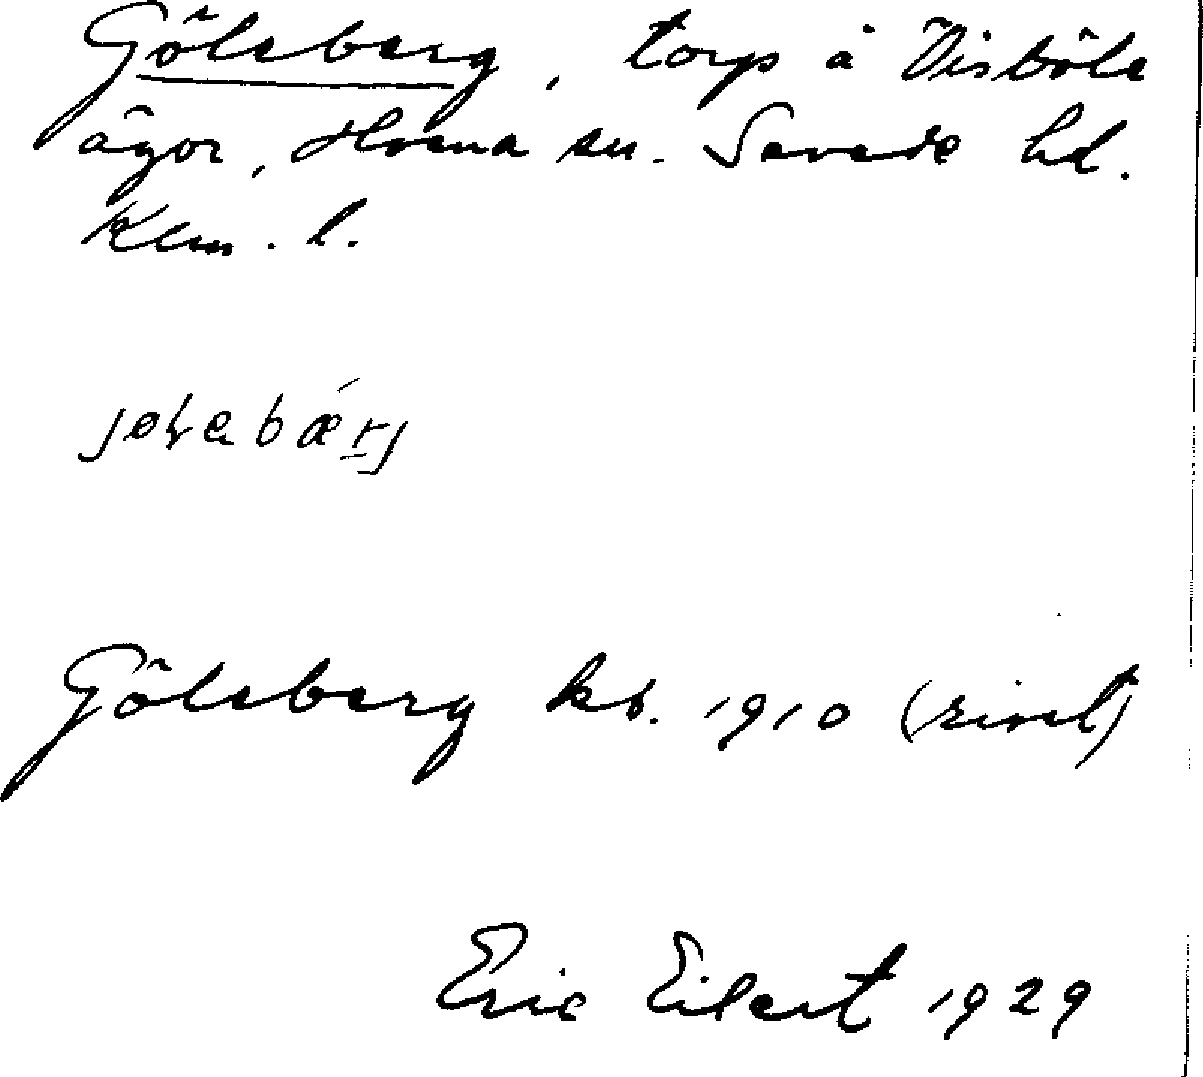 Göleberg, torp å Visböle
ägor, Hvena sn. Sevede hd.
Klm. l.
Göleberg kb. 1910 (rivet)
Eric Eilert 1929